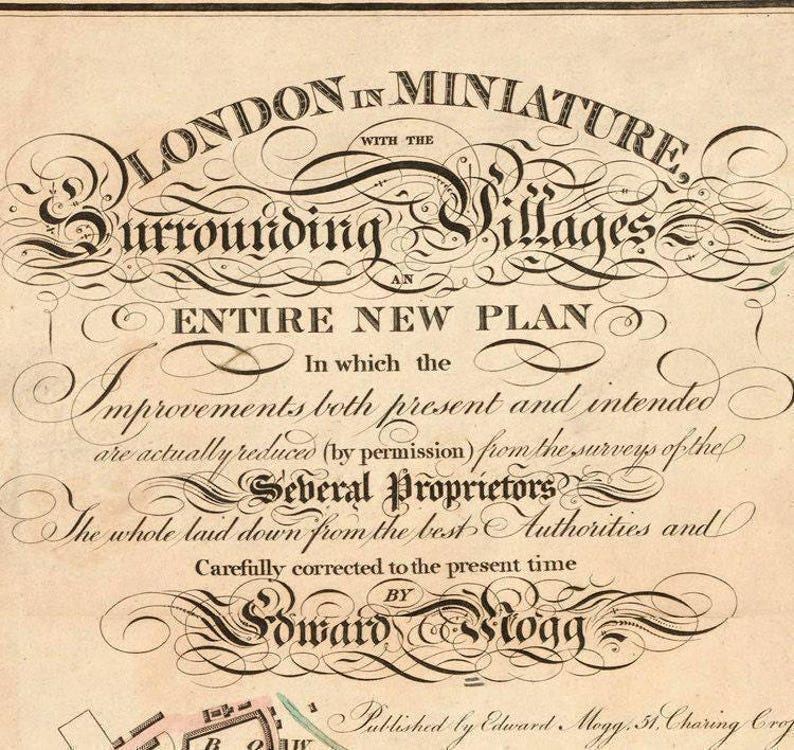 LONDON IN MINIATURE,
WITH THE
Surrounding Villages
AN
ENTIRE NEW PLAN
In which the
Improvements both present and intended
are actually reduced (by permission) from the surveys of the
Several Proprietors
The whole laid down from the best Authorities and
Carefully corrected to the present time
BY
Edward Mogg
Published by Edward Mogg, 51, Charing Cro
BOW